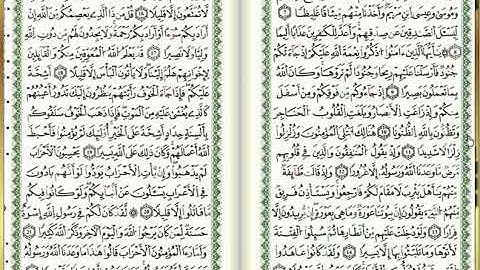 وَمُوسَىٰ وَعِيسَى ٱبْنِ مَرْيَمَ وَأَخَذْنَا مِنْهُم مِّيثَٰقًا غَلِيظًا ٧
لِّيَسْـَٔلَ ٱلصَّٰدِقِينَ عَن صِدْقِهِمْ وَأَعَدَّ لِلْكَٰفِرِينَ عَذَابًا أَلِيمًا
٨ يَٰٓأَيُّهَا ٱلَّذِينَ ءَامَنُوا۟ ٱذْكُرُوا۟ نِعْمَةَ ٱللَّهِ عَلَيْكُمْ إِذْ جَآءَتْكُمْ
جُنُودٌ فَأَرْسَلْنَا عَلَيْهِمْ رِيحًا وَجُنُودًا لَّمْ تَرَوْهَا وَكَانَ ٱللَّهُ
بِمَا تَعْمَلُونَ بَصِيرًا ٩ إِذْ جَآءُوكُم مِّن فَوْقِكُمْ وَمِنْ أَسْفَلَ
مِنكُمْ وَإِذْ زَاغَتِ ٱلْأَبْصَٰرُ وَبَلَغَتِ ٱلْقُلُوبُ ٱلْحَنَاجِرَ
وَتَظُنُّونَ بِٱللَّهِ ٱلظُّنُونَا۠ ١٠ هُنَالِكَ ٱبْتُلِىَ ٱلْمُؤْمِنُونَ وَزُلْزِلُوا۟
زِلْزَالًا شَدِيدًا ١١ وَإِذْ يَقُولُ ٱلْمُنَٰفِقُونَ وَٱلَّذِينَ فِى قُلُوبِهِم
مَّرَضٌ مَّا وَعَدَنَا ٱللَّهُ وَرَسُولُهُۥٓ إِلَّا غُرُورًا ١٢ وَإِذْ قَالَت طَّآئِفَةٌ
مِّنْهُمْ يَٰٓأَهْلَ يَثْرِبَ لَا مُقَامَ لَكُمْ فَٱرْجِعُوا۟ وَيَسْتَـْٔذِنُ فَرِيقٌ
مِّنْهُمُ ٱلنَّبِىَّ يَقُولُونَ إِنَّ بُيُوتَنَا عَوْرَةٌ وَمَا هِىَ بِعَوْرَةٍ إِن يُرِيدُونَ إِلَّا
فِرَارًا ١٣ وَلَوْ دُخِلَتْ عَلَيْهِم مِّنْ أَقْطَارِهَا ثُمَّ سُئِلُوا۟ ٱلْفِتْنَةَ
لَـَٔاتَوْهَا وَمَا تَلَبَّثُوا۟ بِهَآ إِلَّا يَسِيرًا ١٤ وَلَقَدْ كَانُوا۟ عَٰهَدُوا۟
لَّا تُمَتَّعُونَ إِلَّا قَلِيلًا ١٦ قُلْ مَن ذَا ٱلَّذِى يَعْصِمُكُم مِّنَ ٱللَّهِ إِنْ
أَرَادَ بِكُمْ سُوٓءًا أَوْ أَرَادَ بِكُمْ رَحْمَةً وَلَا يَجِدُونَ لَهُم مِّن دُونِ ٱللَّهِ
وَلِيًّا وَلَا نَصِيرًا ١٧ قَدْ يَعْلَمُ ٱللَّهُ ٱلْمُعَوِّقِينَ مِنكُمْ وَٱلْقَآئِلِينَ
لِإِخْوَٰنِهِمْ هَلُمَّ إِلَيْنَا وَلَا يَأْتُونَ ٱلْبَأْسَ إِلَّا قَلِيلًا ١٨ أَشِحَّةً
عَلَيْكُمْ فَإِذَا جَآءَ ٱلْخَوْفُ رَأَيْتَهُمْ يَنظُرُونَ إِلَيْكَ تَدُورُ أَعْيُنُهُمْ
كَٱلَّذِى يُغْشَىٰ عَلَيْهِ مِنَ ٱلْمَوْتِ فَإِذَا ذَهَبَ ٱلْخَوْفُ سَلَقُوكُم
بِأَلْسِنَةٍ حِدَادٍ أَشِحَّةً عَلَى ٱلْخَيْرِ أُو۟لَٰٓئِكَ لَمْ يُؤْمِنُوا۟ فَأَحْبَطَ
ٱللَّهُ أَعْمَٰلَهُمْ وَكَانَ ذَٰلِكَ عَلَى ٱللَّهِ يَسِيرًا ١٩ يَحْسَبُونَ ٱلْأَحْزَابَ
لَمْ يَذْهَبُوا۟ وَإِن يَأْتِ ٱلْأَحْزَابُ يَوَدُّوا۟ لَوْ أَنَّهُم بَادُونَ
فِى ٱلْأَعْرَابِ يَسْـَٔلُونَ عَنْ أَنۢبَآئِكُمْ وَلَوْ كَانُوا۟ فِيكُم
مَّا قَٰتَلُوٓا۟ إِلَّا قَلِيلًا ٢٠ لَّقَدْ كَانَ لَكُمْ فِى رَسُولِ ٱللَّهِ أُسْوَةٌ
حَسَنَةٌ لِّمَن كَانَ يَرْجُوا۟ ٱللَّهَ وَٱلْيَوْمَ ٱلْـَٔاخِرَ وَذَكَرَ ٱللَّهَ كَثِيرًا ٢١
وَلَمَّا رَءَا ٱلْمُؤْمِنُونَ ٱلْأَحْزَابَ قَالُوا۟ هَٰذَا مَا وَعَدَنَا ٱللَّهُ وَرَسُولُهُۥ